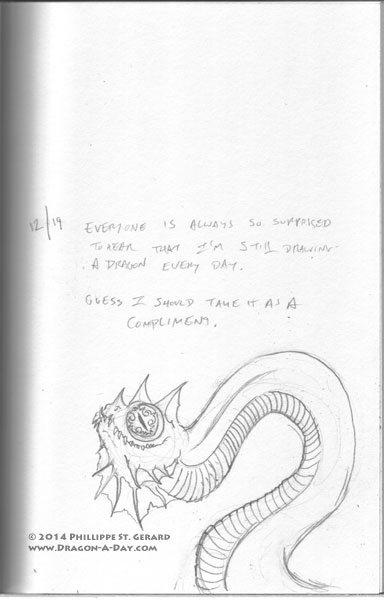 12/19
EVERYONE IS ALWAYS SO SURPRISED
TO HEAR THAT I'M STILL DRAWING
A DRAGON EVERY DAY.
GUESS I SHOULD TAKE IT AS A
COMPLIMENT.
© 2014 PHILLIPPE ST. GERARD
WWW.DRAGON-A-DAY.COM